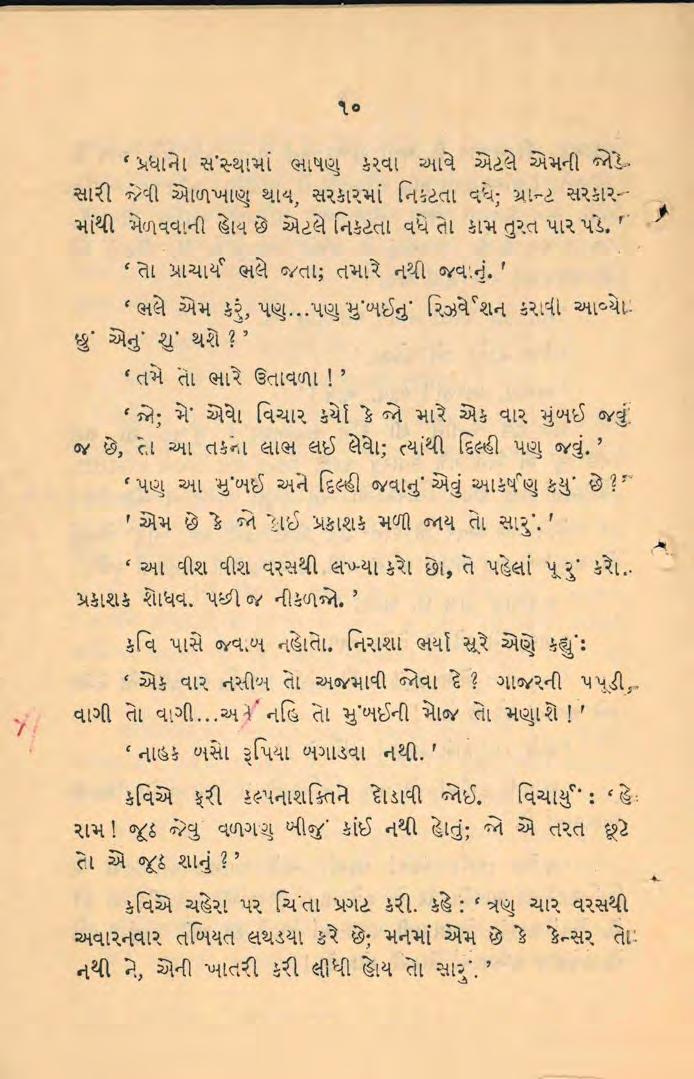 ૧૦
‘ પ્રધાનો સંસ્થામાં ભાષણ કરવા આવે એટલે એમની જોડે
સારી જેવી ઓળખાણ થાય, સરકારમાં નિકટતા વધે; ગ્રાન્ટ સરકાર-
માંથી મેળવવાની હોય છે એટલે નિકટતા વધે તો કામ તુરત પાર પડે. ’
‘ તો પ્રાચાર્ય ભલે જતા; તમારે નથી જવાનું. ’
‘ ભલે એમ કરું, પણ...પણ મુંબઈનું રિઝર્વેશન કરાવી આવ્યો
છું એનું શું થશે ? ’
‘ તમે તો ભારે ઉતાવળા ! ’
‘ જો; મેં એવો વિચાર કર્યો કે જો મારે એક વાર મુંબઈ જવું
જ છે, તો આ તકનો લાભ લઈ લેવો; ત્યાંથી દિલ્હી પણ જવું. ’
‘ પણ આ મુંબઈ અને દિલ્હી જવાનું એવું આકર્ષણ કયું છે ? ’
‘ એમ છે કે જો કોઈ પ્રકાશક મળી જાય તો સારું. ’
‘ આ વીશ વીશ વરસથી લખ્યા કરો છો, તે પહેલાં પૂરું કરો.
પ્રકાશક શોધવા પછી જ નીકળજો. ’
કવિ પાસે જવાબ નહોતો. નિરાશા ભર્યા સૂરે એણે કહ્યું :
‘ એક વાર નસીબ તો અજમાવી જોવા દે ? ગાજરની પપુડી,
વાગી તો વાગી...અને નહિ તો મુંબઈની મોજ તો મણાશે ! ’
‘ નાહક બસો રૂપિયા બગાડવા નથી. ’
કવિએ ફરી કલ્પનાશક્તિને દોડાવી જોઈ. વિચાર્યું : ‘ હે
રામ ! જૂઠ જેવું વળગણ બીજું કાંઈ નથી હોતું; જો એ તરત છૂટે
તો એ જૂઠ શાનું ? ’
કવિએ ચહેરા પર ચિંતા પ્રગટ કરી. કહે : ‘ ત્રણ ચાર વરસથી
અવારનવાર તબિયત લથડયા કરે છે; મનમાં એમ છે કે કેન્સર તો
નથી ને, એની ખાતરી કરી લીધી હોય તો સારું. ’